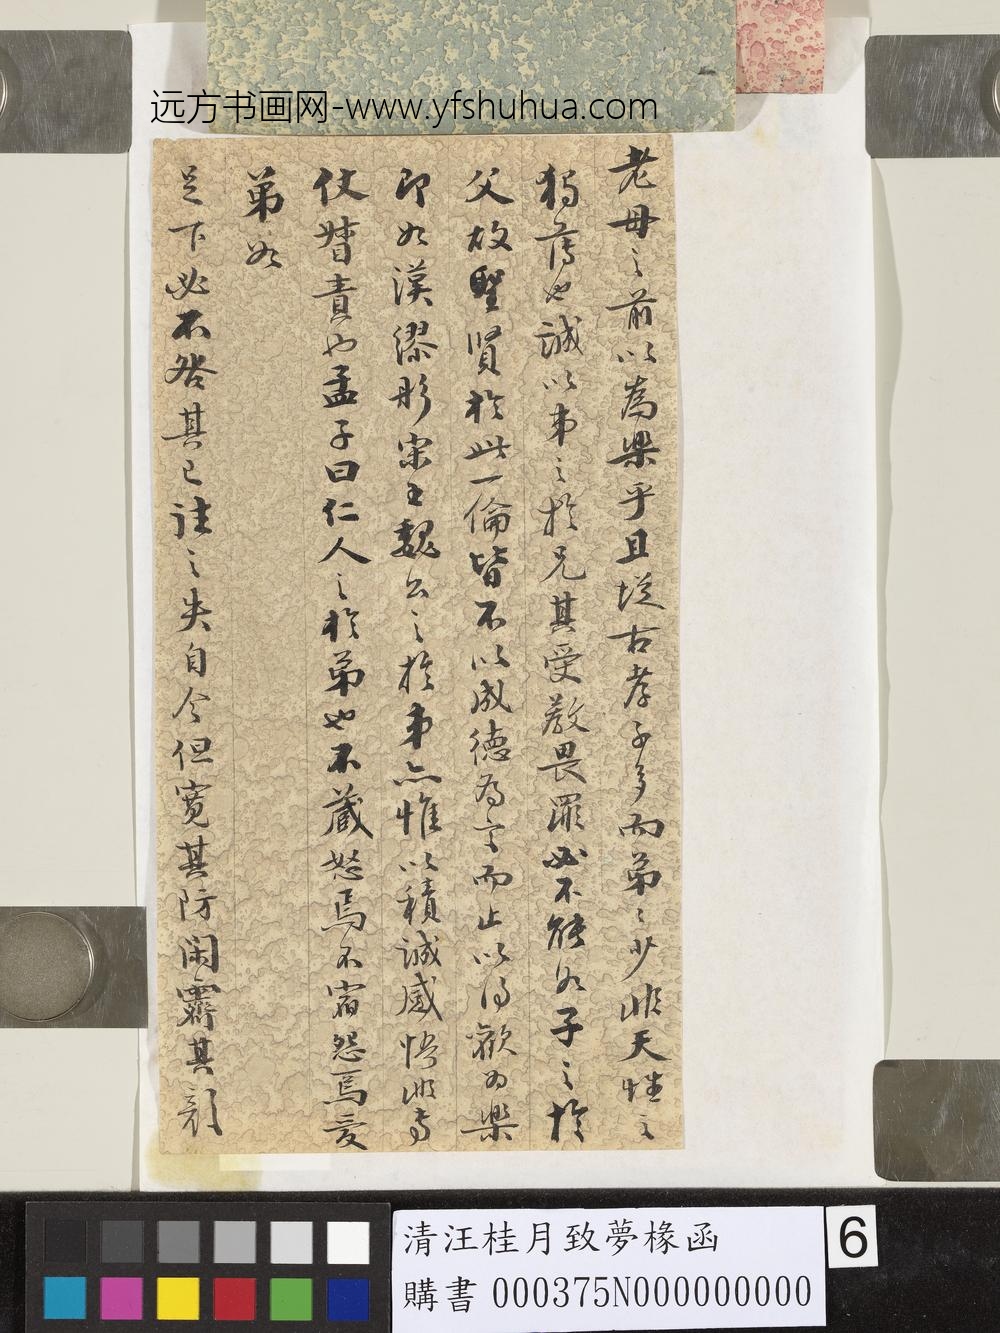 远方书画网-www.yfshuhua.com
老母之前以為樂乎且從古孝子多而弟〻少非天性之
獨薄也誠以弟之於兄其受教畏罪必不能如子之於
父故聖賢於此一倫皆不以成德為言而止以得歡為樂
即如漢繆彤宋王魏公之於弟亦惟以積誠感悟非專
仗督責也孟子曰仁人之於弟也不藏怒焉不宿怨焉愛
弟如
足下必不咎其已往之失自今但寬其防閑霽其顏
清汪桂月致夢椽函
購書 000375N000000000
6